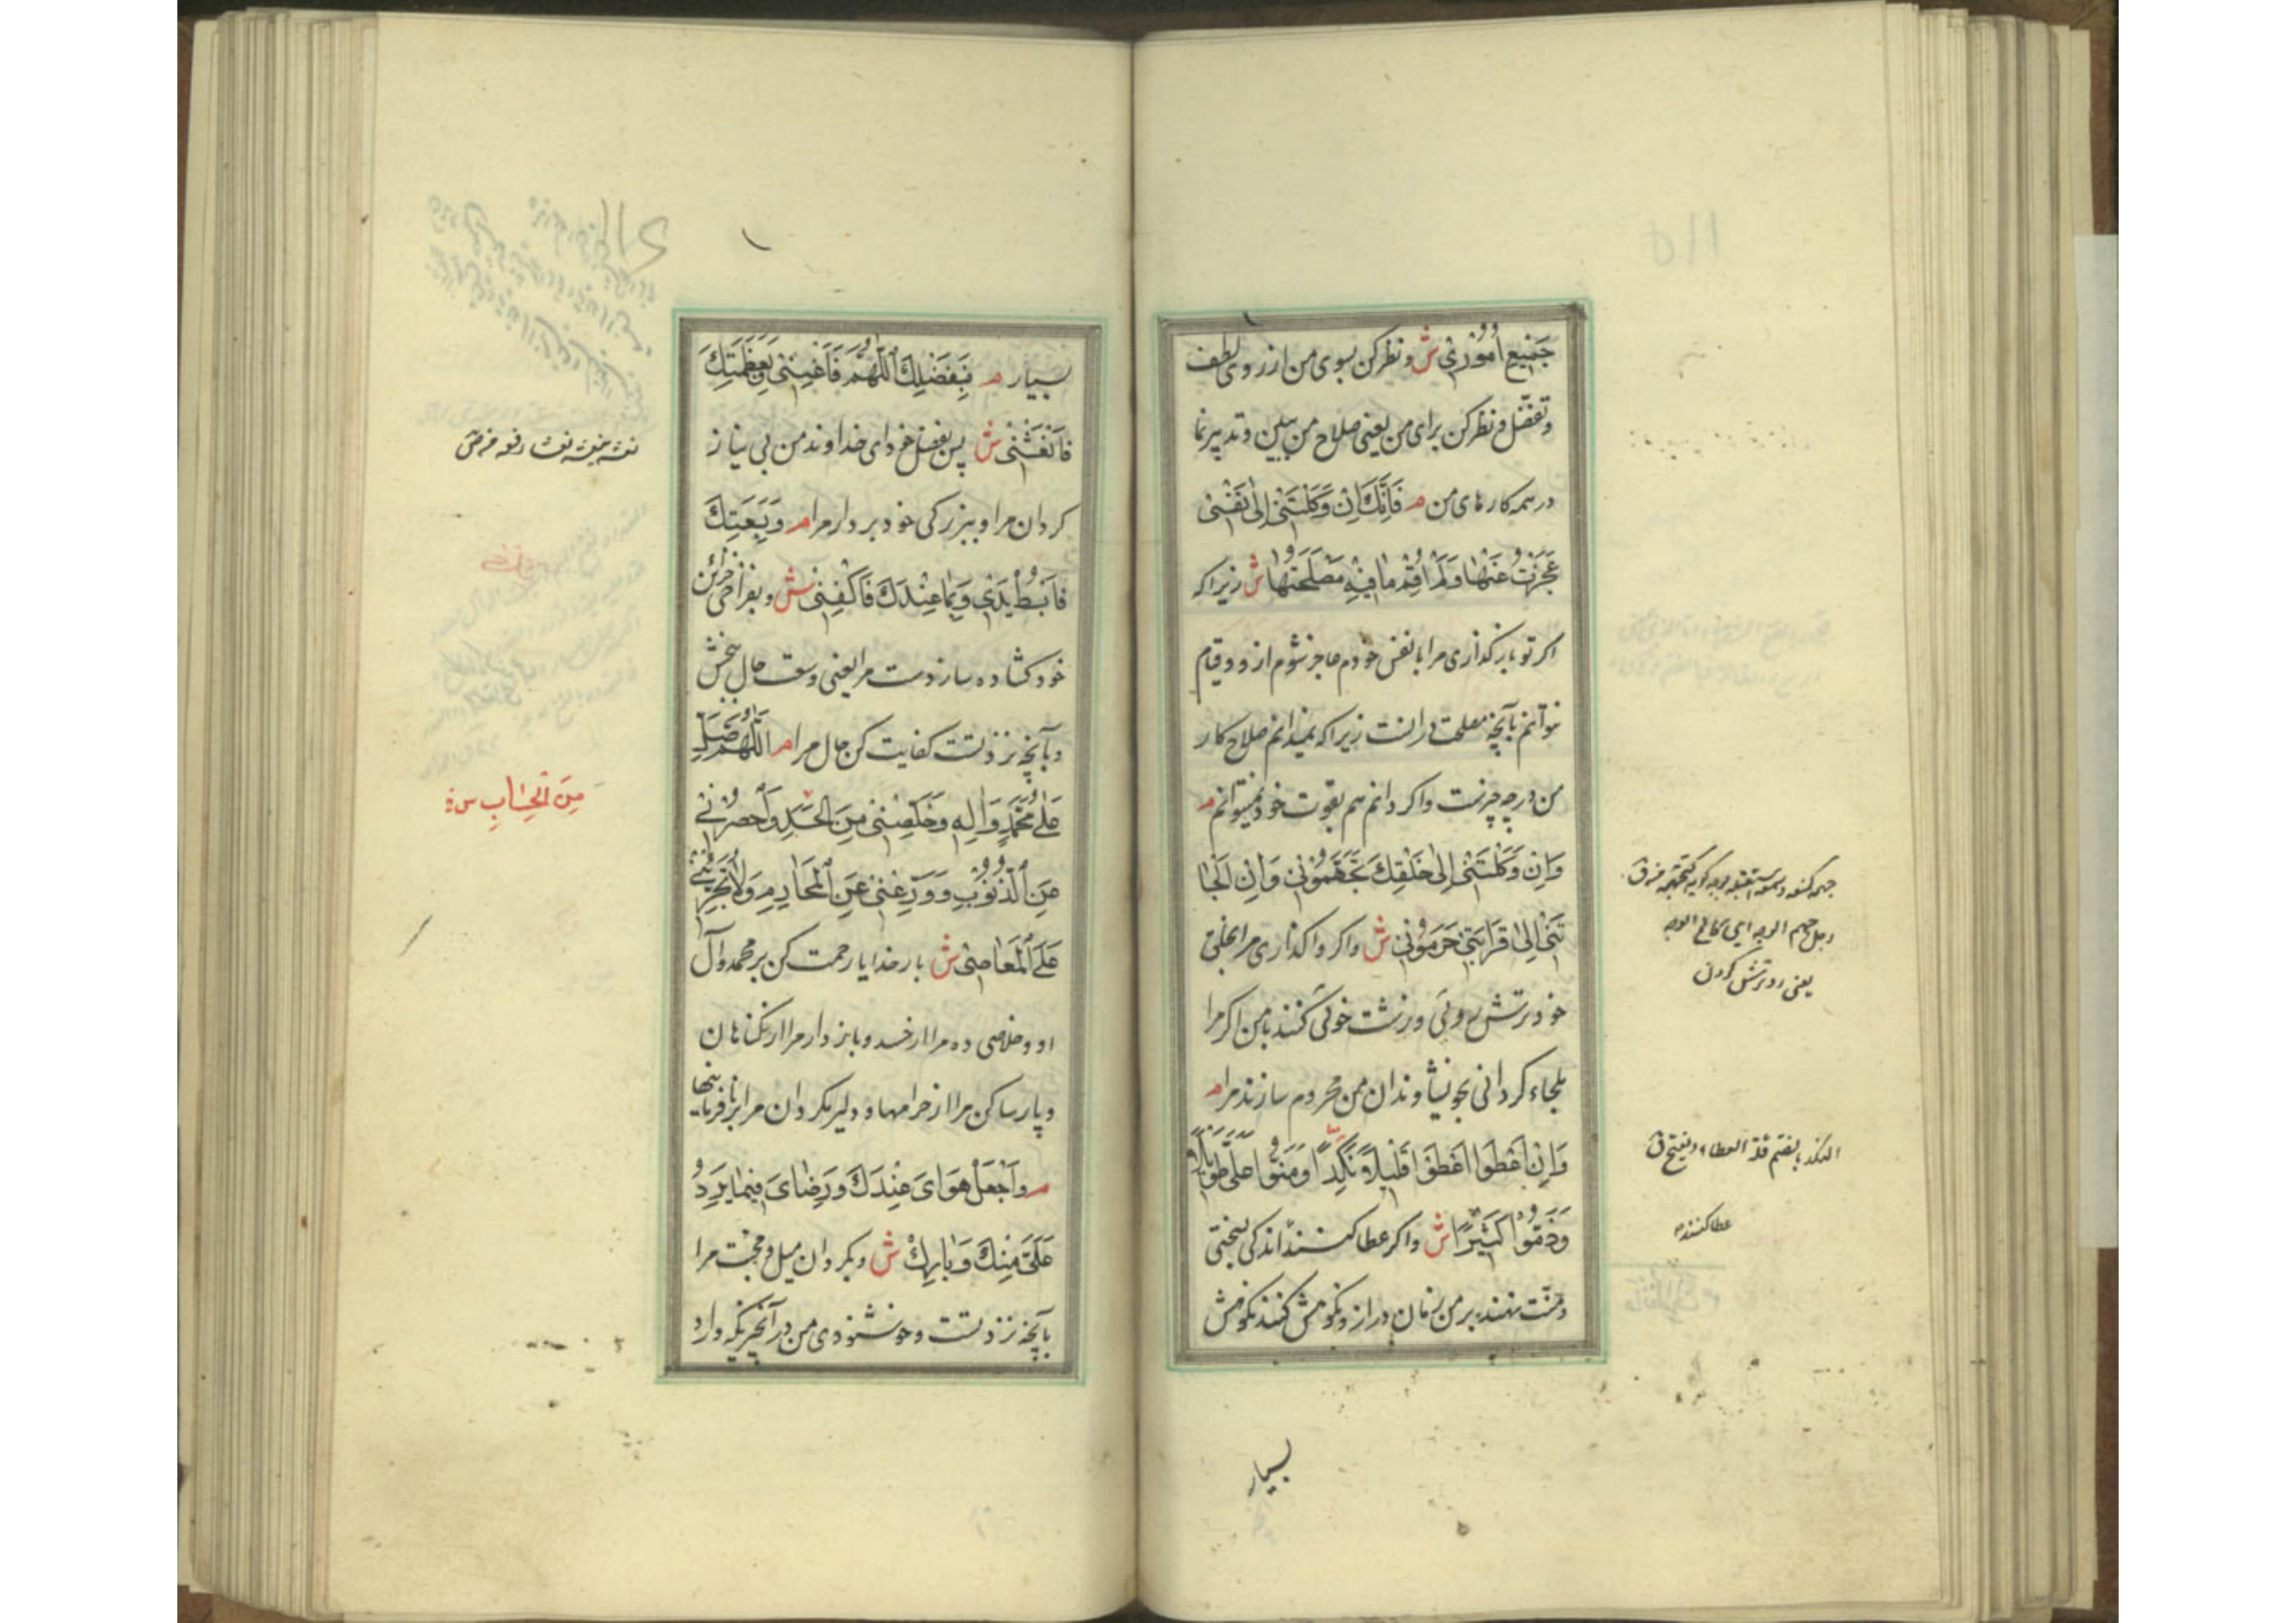 جَمِيعِ أُمُورِي ش و نظر کن بسوی من از روی لطف
و تفضّل و نظر کن برای من یعنی صلاح من ببین و تدبیر نما
در همه کارهای من م فَإِنَّكَ إِنْ وَكَلْتَنِي إِلَى نَفْسِي
عَجَزْتُ عَنْهَا وَلَمْ أُقِمْ مَا فِيهِ مَصْلَحَتُهَا ش زیرا که
اکر تو باز کذاری مرا با نفس خودم عاجز شوم ازو و قیام
نتوانم بآنچه مصلحت در انست زیرا که نمیدانم صلاح کار
من در چه چیزست و اکر دانم هم بقوت خود نمیتوانم م
وَإِنْ وَكَلْتَنِي إِلَى خَلْقِكَ تَجَهَّمُونِي وَإِنْ أَلْجَأْ
تَنِي إِلَى قَرَابَتِي حَرَمُونِي ش و اکر واکذاری مرا بخلق
خود ترش روئی و زشت خوئی کنند با من و اکر مرا
ملجاء کردانی بخویشاوندان من محروم سازند مرا م
وَإِنْ أَعْطَوْا أَعْطَوْا قَلِيلًا نَكِدًا وَمَنُّوا عَلَيَّ طَوِيلًا
وَذَمُّوا كَثِيرًا ش و اکر عطا کنند اندکی بسختی
و منّت نهند بر من زمان دراز و نکوهش کنند نکوهش
بسیار
جهمه کمنعه و سمعه استقبله بوجه کریه کتجهمه ق
رجل جهم الوجه ای کالح الوجه
یعنی رو ترش کردن
النکد بالضم قلة العطاء و یفتح ق
عطا کننده
بسیار م فَبِفَضْلِكَ اللَّهُمَّ فَأَغْنِنِي وَبِعَظَمَتِكَ
فَانْعَشْنِي ش پس بفضل خود ای خداوند من بی نیاز
کردان مرا و ببزرکی خود بردار مرا م وَبِسَعَتِكَ
فَابْسُطْ يَدِي وَبِمَا عِنْدَكَ فَاكْفِنِي ش و بفراخی خزائن
خود کشاده ساز دست مرا یعنی وسعت حال بخش
و بآنچه نزد تست کفایت کن حال مرا م اللَّهُمَّ صَلِّ
عَلَى مُحَمَّدٍ وَآلِهِ وَخَلِّصْنِي مِنَ الْحَسَدِ وَاحْصُرْنِي
عَنِ الذُّنُوبِ وَوَرِّعْنِي عَنِ الْمَحَارِمِ وَلَا تُجَرِّئْنِي
عَلَى الْمَعَاصِي ش بار خدایا رحمت کن بر محمد و آل
او و خلاصی ده مرا از حسد و باز دار مرا از کناهان
و پارسا کن مرا از حرامها و دلیر مکردان مرا بر نافرمانیها
م وَاجْعَلْ هَوَايَ عِنْدَكَ وَرِضَايَ فِيمَا يَرِدُ
عَلَيَّ مِنْكَ وَبَارِكْ ش و بکردان میل و محبت مرا
بآنچه نزد تست و خوشنودی من در آنچیزیکه وارد
مِنَ الْحِسَابِ س